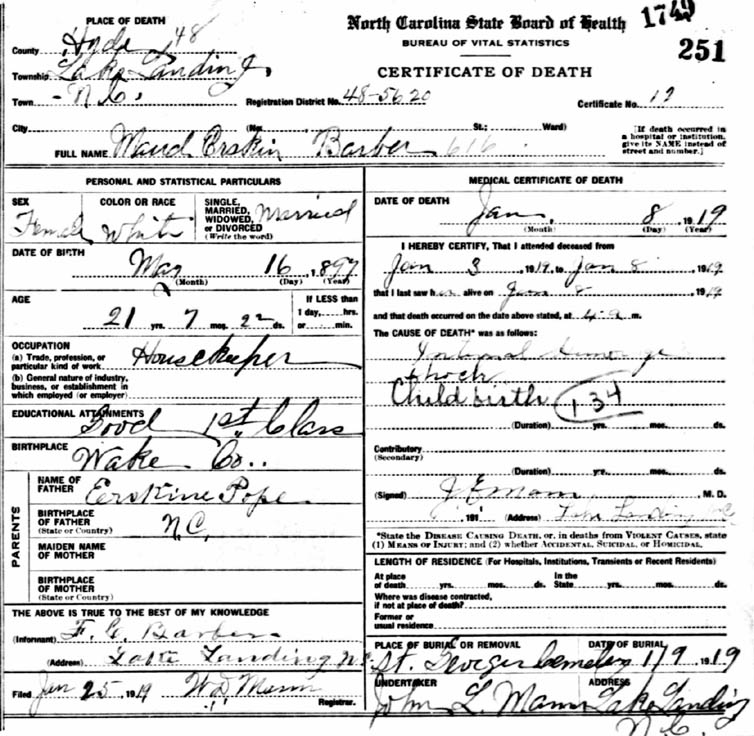 North Carolina State Board of Health
1749
BUREAU OF VITAL STATISTICS
251
CERTIFICATE OF DEATH
PLACE OF DEATH
County Hyde 48
Township Lake Landing,
Town - N.C.
Registration District No. 48-5620 Certificate No. 12
City (No. St.; Ward)
[If death occurred in a hospital or institution, give its NAME instead of street and number.]
FULL NAME Maud Erskin Barber 616
PERSONAL AND STATISTICAL PARTICULARS
SEX Female
COLOR OR RACE White
SINGLE, MARRIED, WIDOWED, or DIVORCED (Write the word) Married
DATE OF BIRTH May 16, 1897
(Month) (Day) (Year)
AGE 21 yrs. 7 mos. 22 ds.
If LESS than 1 day,....hrs. or....min.
OCCUPATION
(a) Trade, profession, or particular kind of work Housekeeper
(b) General nature of industry, business, or establishment in which employed (or employer)
EDUCATIONAL ATTAINMENTS
Good 1st Class
BIRTHPLACE
Wake Co..
PARENTS
NAME OF FATHER Erskine Pope
BIRTHPLACE OF FATHER (State or Country) N.C.
MAIDEN NAME OF MOTHER
BIRTHPLACE OF MOTHER (State or Country)
THE ABOVE IS TRUE TO THE BEST OF MY KNOWLEDGE
(Informant) F. C. Barber
(Address) Lake Landing N.C.
Filed Jan 25, 1919 W D Mann
Registrar.
MEDICAL CERTIFICATE OF DEATH
DATE OF DEATH
Jan, 8 1919
(Month) (Day) (Year)
I HEREBY CERTIFY, That I attended deceased from
Jan 3 1919, to Jan 8 1919,
that I last saw her alive on Jan 8 1919
and that death occurred on the date above stated, at 4 a m.
The CAUSE OF DEATH* was as follows:
shock
Childbirth 134
(Duration) yrs. mos. ds.
Contributory (Secondary)
(Duration) yrs. mos. ds.
(Signed) J E Mann, M. D.
, 191 (Address) Landing
*State the DISEASE CAUSING DEATH, or, in deaths from VIOLENT CAUSES, state (1) MEANS OF INJURY; and (2) whether ACCIDENTAL, SUICIDAL, or HOMICIDAL.
LENGTH OF RESIDENCE (For Hospitals, Institutions, Transients or Recent Residents)
At place of death yrs. mos. ds. In the State yrs. mos. ds.
Where was disease contracted, if not at place of death?
Former or usual residence
PLACE OF BURIAL OR REMOVAL DATE OF BURIAL
St. Georges Cemetery 1/9 1919
UNDERTAKER ADDRESS
John L. Mann Lake Landing
N.C.